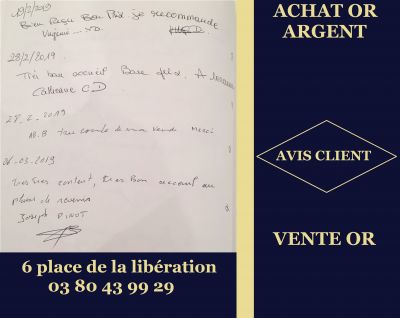 19/2/2019
Bien Reçu Bon Prix je recommande
Virginie
28/2/2019
Très bon accueil Bon prix. A
Catherine C D
28_2_2019
M.B très de ma vente Merci
26-03-2019
Très très content, très Bon accueil au
plaisir de revenir
Joseph PINOT
6 place de la libération
03 80 43 99 29
ACHAT OR
ARGENT
AVIS CLIENT
VENTE OR